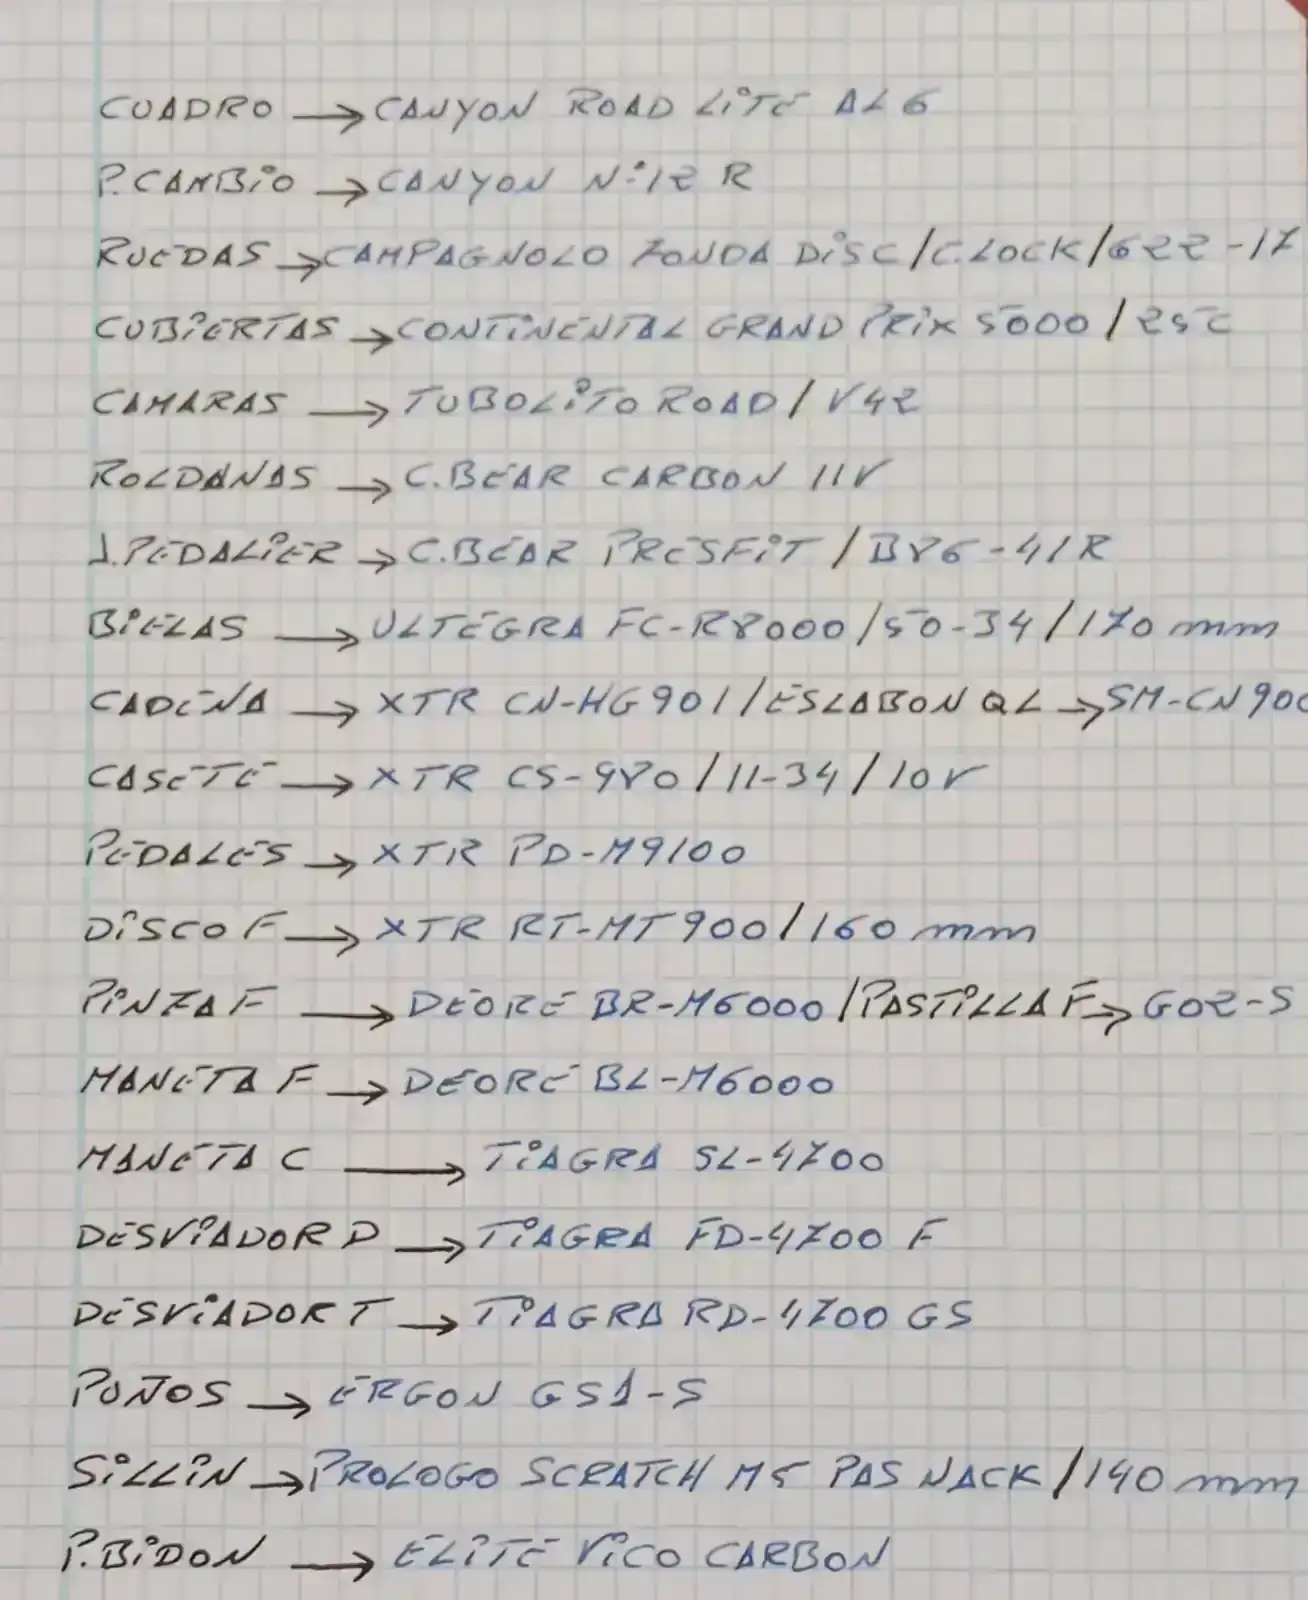 CUADRO → CANYON ROAD LITE AL 6
P. CAMBIO → CANYON Nº:12 R
RUEDAS → CAMPAGNOLO ZONDA DISC/C.LOCK/622-17
CUBIERTAS → CONTINENTAL GRAND PRIX 5000/25C
CAMARAS → TUBOLITO ROAD/V42
ROLDANAS → C.BEAR CARBON 11V
J.PEDALIER → C.BEAR PRESFIT/B86-41R
BIELAS → ULTEGRA FC-R8000/50-34/170 mm
CADENA → XTR CN-HG901/ESLABON QL → SM-CN900
CASETE → XTR CS-980/11-34/10V
PEDALES → XTR PD-M9100
DISCO F → XTR RT-MT900/160 mm
PINZA F → DEORE BR-M6000/PASTILLA F → G02-S
MANETA F → DEORE BL-M6000
MANETA C → TIAGRA SL-4700
DESVIADOR D → TIAGRA FD-4700 F
DESVIADOR T → TIAGRA RD-4700 GS
PUÑOS → ERGON GS1-S
SILLIN → PROLOGO SCRATCH M5 PAS NACK/140 mm
P.BIDON → ELITE VICO CARBON